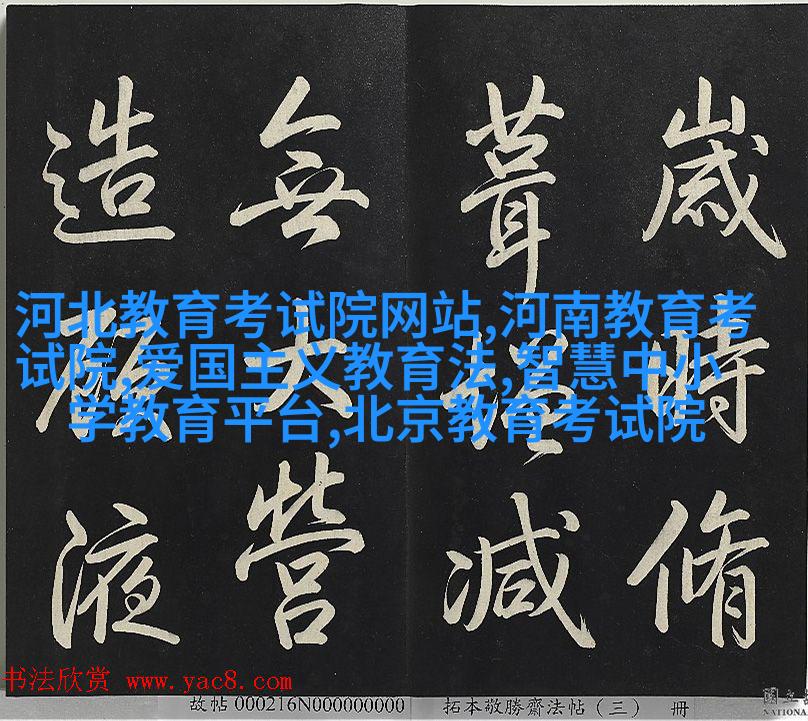 歲時脩
葺增減
無大營
造液
河北教育考试院网站,河南教育考
试院,爱国主义教育法,智慧中小
学教育平台,北京教育考试院
书法欣赏 www.yac8.com
故帖 000216N000000000 拓本敬勝齋法帖(三) 冊
國立
NATIONA